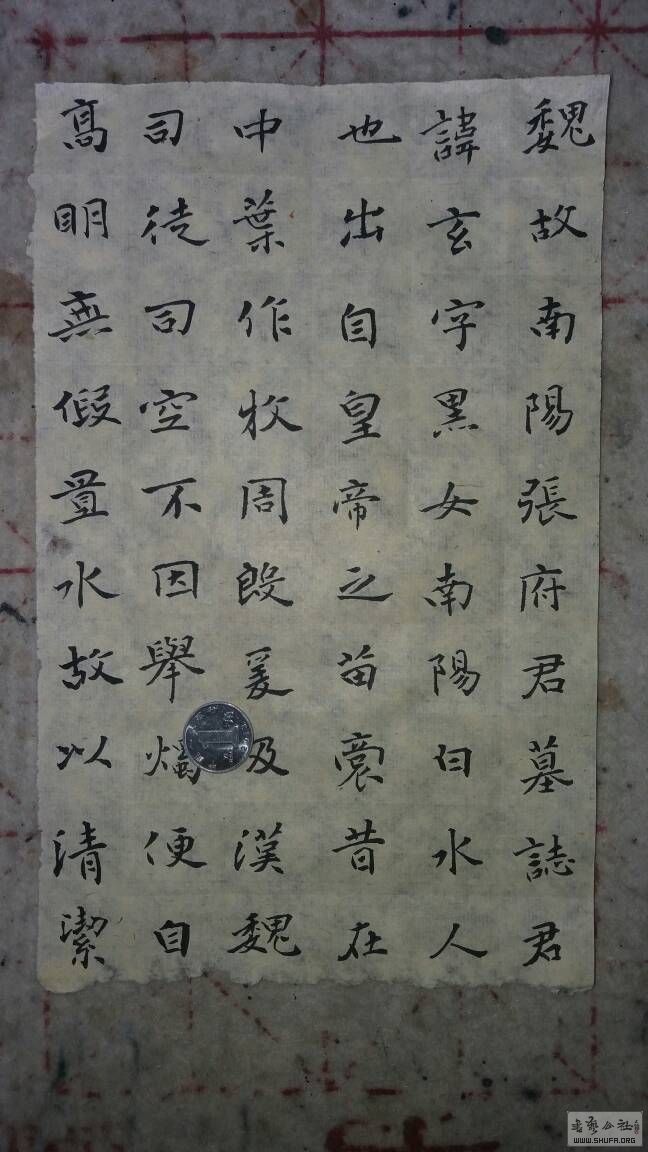 魏故南陽張府君墓誌君
諱玄字黑女南陽白水人
也出自皇帝之苗裔昔在
中葉作牧周殷爰及漢魏
司徒司空不因舉燭便自
高明無假置水故以清潔
WWW.SHUFA.ORG